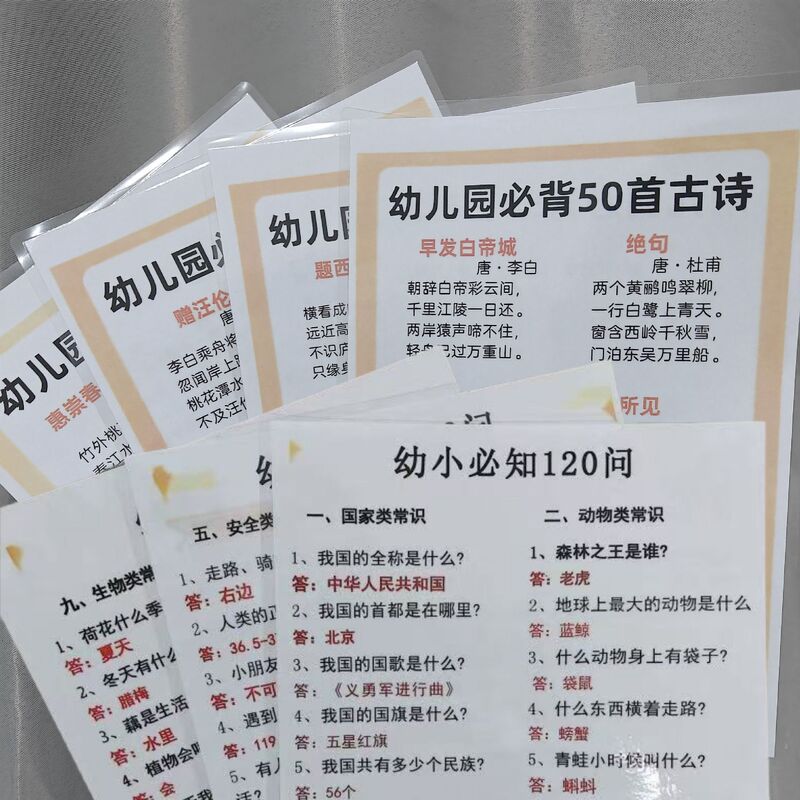 幼儿园必背50首古诗
早发白帝城
唐·李白
朝辞白帝彩云间，
千里江陵一日还。
两岸猿声啼不住，
轻舟已过万重山。
绝句
唐·杜甫
两个黄鹂鸣翠柳，
一行白鹭上青天。
窗含西岭千秋雪，
门泊东吴万里船。
所见
幼儿园
题西
横看成
远近高
不识庐
只缘身
幼儿园必
赠汪伦
唐
李白乘舟将
忽闻岸上踏
桃花潭水
不及汪伦
幼儿园
惠崇春
竹外桃
春江水
幼小必知120问
一、国家类常识
1、我国的全称是什么?
答：中华人民共和国
2、我国的首都是在哪里?
答：北京
3、我国的国歌是什么?
答：《义勇军进行曲》
4、我国的国旗是什么?
答：五星红旗
5、我国共有多少个民族?
答：56个
二、动物类常识
1、森林之王是谁?
答：老虎
2、地球上最大的动物是什么
答：蓝鲸
3、什么动物身上有袋子?
答：袋鼠
4、什么东西横着走路?
答：螃蟹
5、青蛙小时候叫什么?
答：蝌蚪
五、安全类
1、走路、骑
答：右边
2、人类的正
答：36.5-37
3、小朋友
答：不可
4、遇到
答：119
5、有人
活?
九、生物类常
1、荷花什么季
答：夏天
2、冬天有什么
答：腊梅
3、藕是生活
答：水里
4、植物会呼
答：会